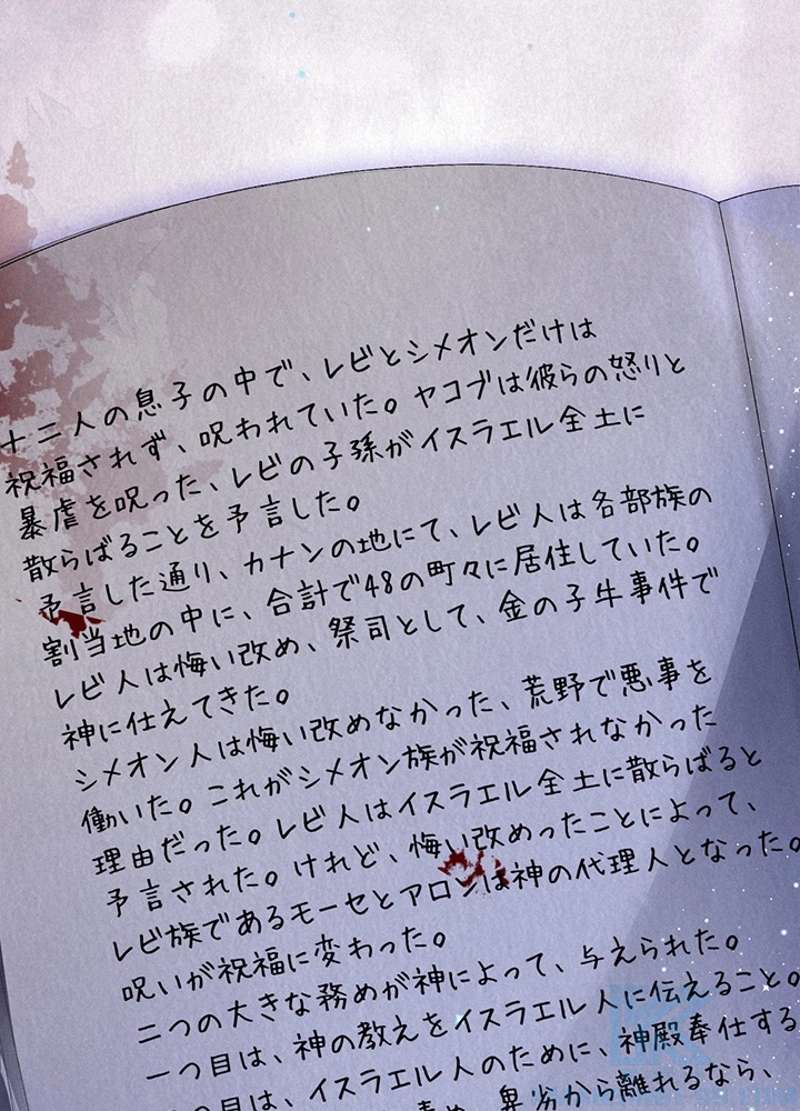 十二人の息子の中で、レビとシメオンだけは
祝福されず、呪われていた。ヤコブは彼らの怒りと
暴虐を呪った、レビの子孫がイスラエル全土に
散らばることを予言した。
予言した通り、カナンの地にて、レビ人は各部族の
割当地の中に、合計で48の町々に居住していた。
レビ人は悔い改め、祭司として、金の子牛事件で
神に仕えてきた。
シメオン人は悔い改めなかった、荒野で悪事を
働いた。これがシメオン族が祝福されなかった
理由だった。レビ人はイスラエル全土に散らばると
予言された。けれど、悔い改めったことによって、
レビ族であるモーセとアロンは神の代理人となった。
呪いが祝福に変わった。
二つの大きな務めが神によって、与えられた。
一つ目は、神の教えをイスラエル人に伝えること。
目は、イスラエル人のために、神殿奉仕する
め、卑劣から離れるなら、